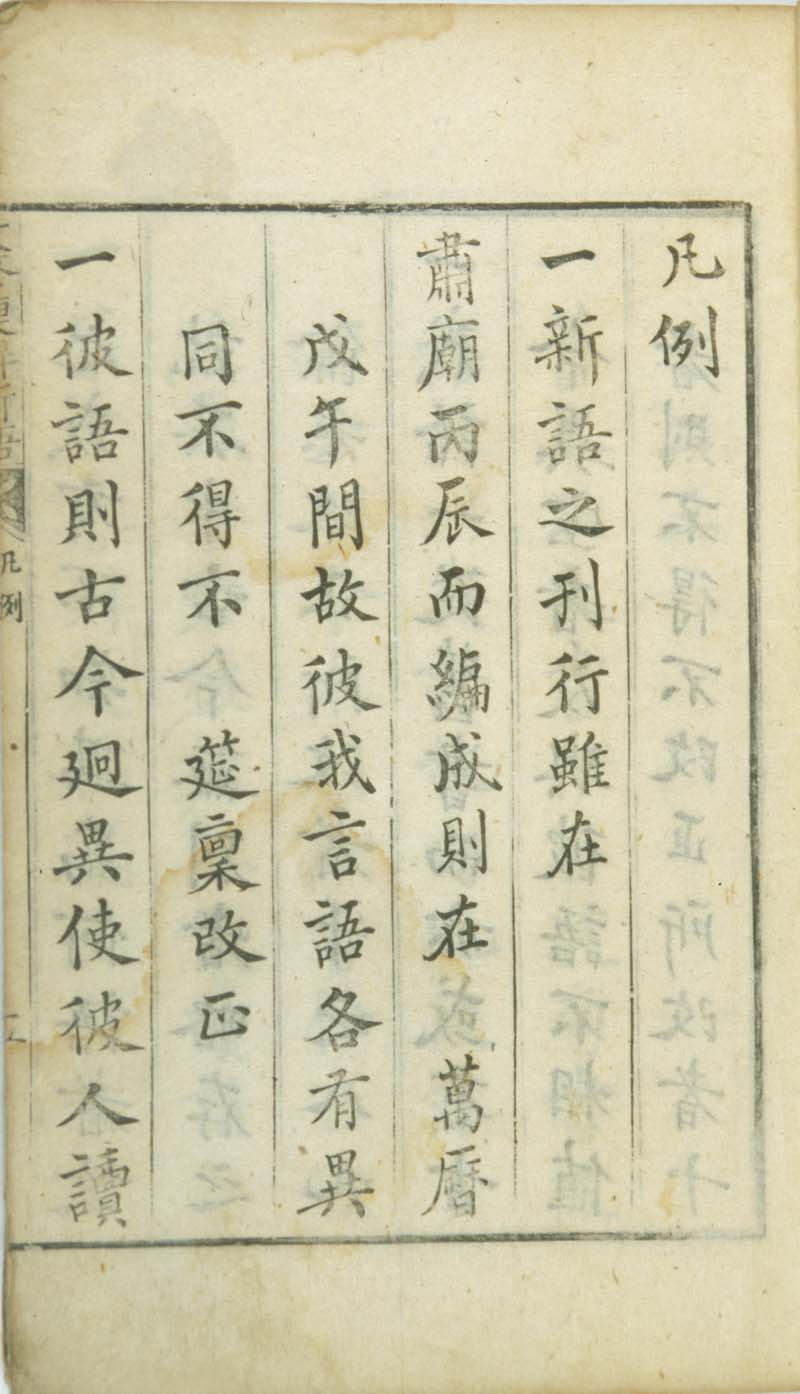 凡例
一新語之刊行雖在
肅廟丙辰而編成則在 萬曆
戊午間故彼我言語各有異
同不得不 筵稟改正
一彼語則古今迥異使彼人讀
凡例